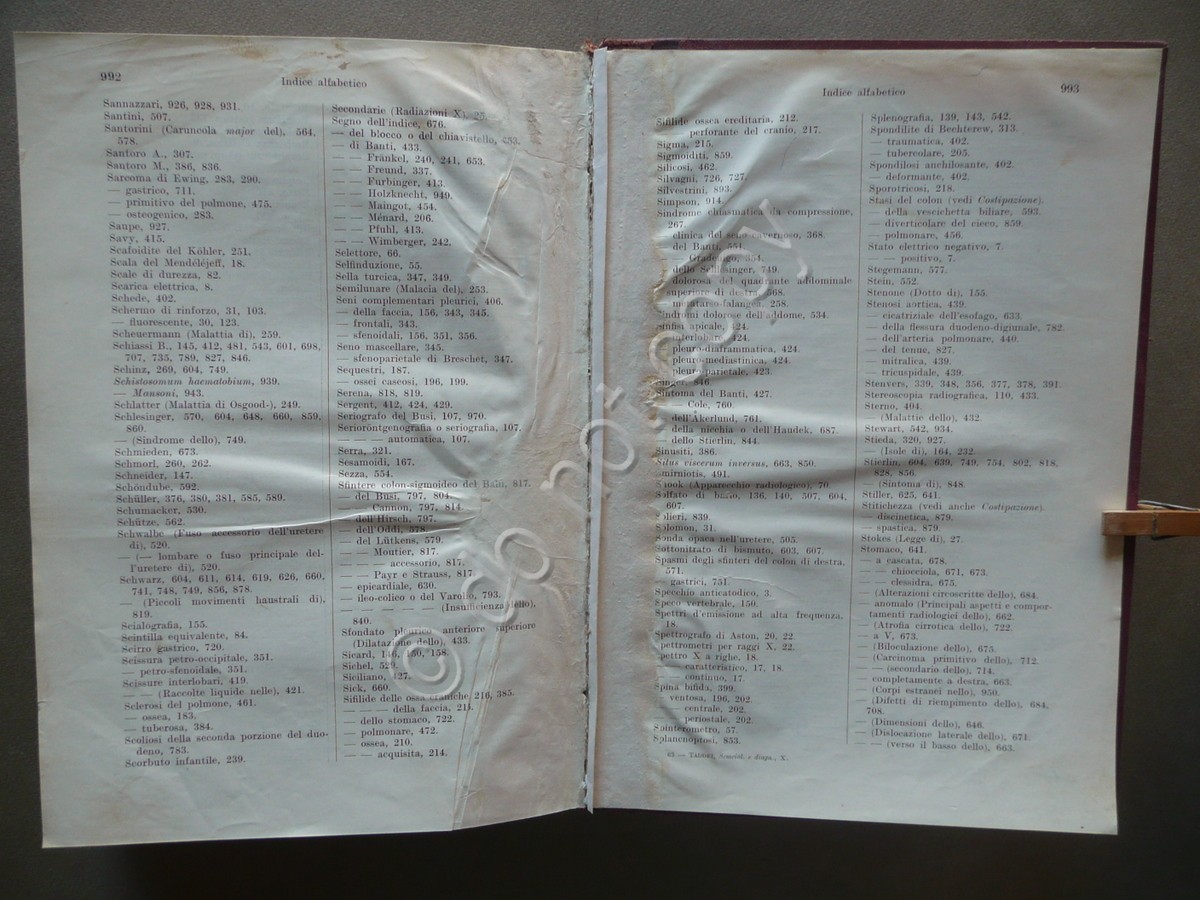 992
Indice alfabetico
Sannazzari, 926, 928, 931.
Santini, 507.
Santorini (Caruncola major del), 564,
578.
Santoro A., 307.
Santoro M., 386, 836.
Sarcoma di Ewing, 283, 290.
— gastrico, 711.
— primitivo del polmone, 475.
— osteogenico, 283.
Saupe, 927.
Savy, 415.
Scafoidite del Köhler, 251.
Scala del Mendéléjeff, 18.
Scale di durezza, 82.
Scarica elettrica, 8.
Schede, 402.
Schermo di rinforzo, 31, 103.
— fluorescente, 30, 123.
Scheuermann (Malattia di), 259.
Schiassi B., 145, 412, 481, 543, 601, 698,
707, 735, 789, 827, 846.
Schinz, 269, 604, 749.
Schistosomum haematobium, 939.
— Mansoni, 943.
Schlatter (Malattia di Osgood-), 249.
Schlesinger, 570, 604, 648, 660, 859,
860.
— (Sindrome dello), 749.
Schmieden, 673.
Schmorl, 260, 262.
Schneider, 147.
Schöndube, 592.
Schüller, 376, 380, 381, 585, 589.
Schumacker, 530.
Schütze, 562.
Schwalbe (Fuso accessorio dell'uretere
di), 520.
— (— lombare o fuso principale del-
l'uretere di), 520.
Schwarz, 604, 611, 614, 619, 626, 660,
741, 748, 749, 856, 878.
— (Piccoli movimenti haustrali di),
819.
Scialografia, 155.
Scintilla equivalente, 84.
Scirro gastrico, 720.
Scissura petro-occipitale, 351.
— petro-sfenoidale, 351.
Scissure interlobari, 419.
— — (Raccolte liquide nelle), 421.
Sclerosi del polmone, 461.
— ossea, 183.
— tuberosa, 384.
Scoliosi della seconda porzione del duo-
deno, 783.
Scorbuto infantile, 239.
Secondarie (Radiazioni X), 25.
Segno dell'indice, 676.
— del blocco o del chiavistello, 453.
— di Banti, 433.
— — Fränkel, 240, 241, 653.
— — Freund, 337.
— — Fürbinger, 413.
— — Holzknecht, 949.
— — Maingot, 454.
— — Ménard, 206.
— — Pfuhl, 413.
— — Wimberger, 242.
Selettore, 66.
Selfinduzione, 55.
Sella turcica, 347, 349.
Semilunare (Malacia del), 253.
Seni complementari pleurici, 406.
— della faccia, 156, 343, 345.
— frontali, 343.
— sfenoidali, 156, 351, 356.
Seno mascellare, 345.
— sfenoparietale di Breschet, 347.
Sequestri, 187.
— ossei caseosi, 196, 199.
Serena, 818, 819.
Sergent, 412, 424, 429.
Seriografo del Busi, 107, 970.
Serioröntgenografia o seriografia, 107.
— — — automatica, 107.
Serra, 321.
Sesamoidi, 167.
Sezza, 554.
Sfintere colon-sigmoideo del Balli, 817.
— del Busi, 797, 804.
— — Cannon, 797, 814.
— dell'Hirsch, 797.
— dell'Oddi, 578.
— del Lütkens, 579.
— — Moutier, 817.
— — — accessorio, 817.
— — Payr e Strauss, 817.
— epicardiale, 630.
— ileo-colico o del Varolio, 793.
— — — — — (Insufficienza dello),
840.
Sfondato pleurico anteriore superiore
(Dilatazione dello), 433.
Sicard, 146, 150, 158.
Sichel, 529.
Siciliano, 427.
Sick, 660.
Sifilide delle ossa craniche, 216, 385.
— — — della faccia, 215.
— dello stomaco, 722.
— polmonare, 472.
— ossea, 210.
— — acquisita, 214.
Indice alfabetico
993
Sifilide ossea ereditaria, 212.
perforante del cranio, 217.
Sigma, 215.
Sigmoiditi, 859.
Silicosi, 462.
Silvagni, 726, 727.
Silvestrini, 893.
Simpson, 914.
Sindrome chiasmatica da compressione,
267.
clinica del seno cavernoso, 368.
del Banti, 551.
— Gradenigo, 354.
dello Schlesinger, 749.
dolorosa del quadrante addominale
superiore di destra, 568.
metatarso-falangea, 258.
Sindromi dolorose dell'addome, 534.
Sinfisi apicale, 424.
interlobare, 424.
pleuro-diaframmatica, 424.
pleuro-mediastinica, 424.
pleuro-parietale, 423.
Singer, 846.
Sintoma del Banti, 427.
— Cole, 760.
dell'Åkerlund, 761.
— della nicchia o dell'Haudek, 687.
— dello Stierlin, 844.
Sinusiti, 386.
Situs viscerum inversus, 663, 850.
Smirniotis, 491.
Snook (Apparecchio radiologico), 70.
Solfato di bario, 136, 140, 507, 604,
607.
Solieri, 839.
Solomon, 31.
Sonda opaca nell'uretere, 505.
Sottonitrato di bismuto, 603, 607.
Spasmi degli sfinteri del colon di destra,
571.
— gastrici, 751.
Specchio anticatodico, 3.
Speco vertebrale, 150.
Spettri d'emissione ad alta frequenza,
18.
Spettrografo di Aston, 20, 22.
Spettrometri per raggi X, 22.
Spettro X a righe, 18.
— caratteristico, 17, 18.
— continuo, 17.
Spina bifida, 399.
— ventosa, 196, 202.
— — centrale, 202.
— — periostale, 202.
Spinterometro, 57.
Splancnoptosi, 853.
63 — TADDEI, Semeiol. e diagn., X.
Splenografia, 139, 143, 542.
Spondilite di Bechterew, 313.
— traumatica, 402.
— tubercolare, 205.
Spondilosi anchilosante, 402.
— deformante, 402.
Sporotricosi, 218.
Stasi del colon (vedi Costipazione).
— della vescichetta biliare, 593.
— diverticolare del cieco, 859.
— polmonare, 456.
Stato elettrico negativo, 7.
— — positivo, 7.
Stegemann, 577.
Stein, 552.
Stenone (Dotto di), 155.
Stenosi aortica, 439.
— cicatriziale dell'esofago, 633.
— della flessura duodeno-digiunale, 782.
— dell'arteria polmonare, 440.
— del tenue, 827.
— mitralica, 439.
— tricuspidale, 439.
Stenvers, 339, 348, 356, 377, 378, 391.
Stereoscopia radiografica, 110, 433.
Sterno, 404.
— (Malattie dello), 432.
Stewart, 542, 934.
Stieda, 320, 927.
— (Isole di), 164, 232.
Stierlin, 604, 639, 749, 754, 802, 818,
828, 856.
— (Sintoma di), 848.
Stiller, 625, 641.
Stitichezza (vedi anche Costipazione).
— discinetica, 879.
— spastica, 879.
Stokes (Legge di), 27.
Stomaco, 641.
— a cascata, 678.
— — chiocciola, 671, 673.
— — clessidra, 675.
— (Alterazioni circoscritte dello), 684.
— anomalo (Principali aspetti e compor-
tamenti radiologici dello), 662.
— (Atrofia cirrotica dello), 722.
— a V, 673.
— (Biloculazione dello), 675.
— (Carcinoma primitivo dello), 712.
— (— secondario dello), 714.
— completamente a destra, 663.
— (Corpi estranei nello), 950.
— (Difetti di riempimento dello), 684,
708.
— (Dimensioni dello), 646.
— (Dislocazione laterale dello), 671.
— — (verso il basso dello), 663.
© bp mp1.ebay